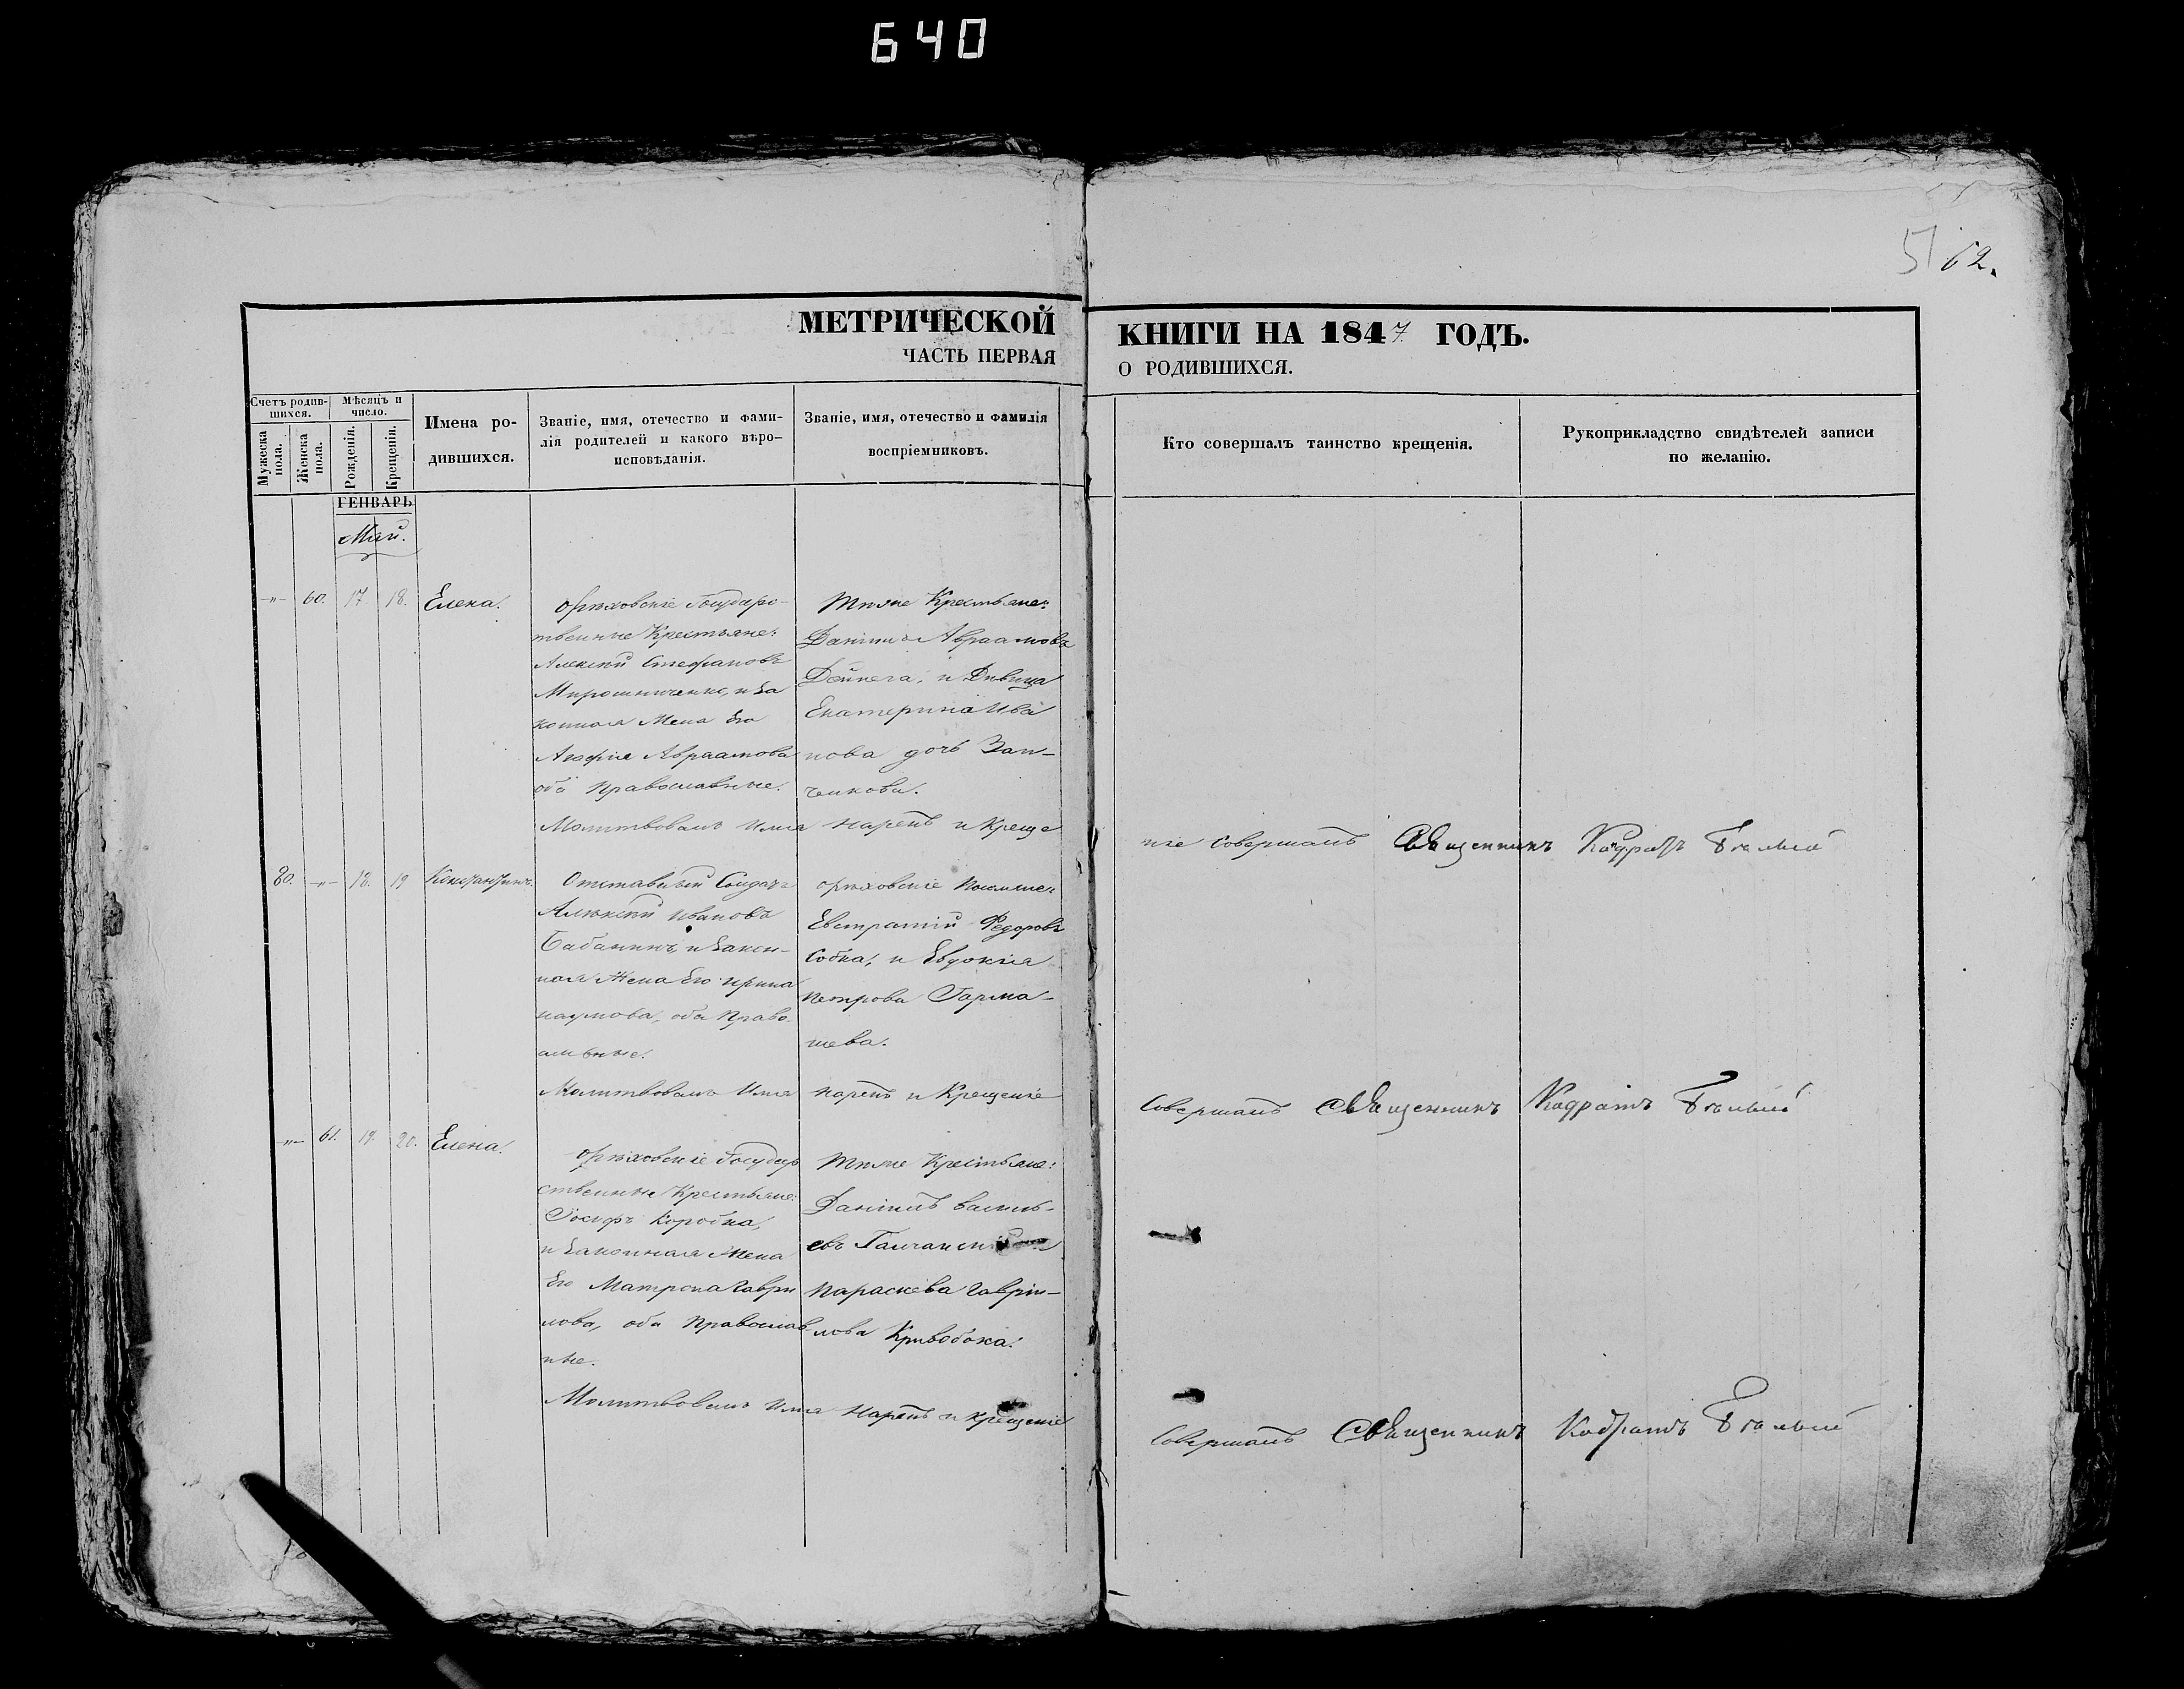 640
5 62.
МЕТРИЧЕСКОЙ КНИГИ НА 1847 ГОДЪ.
ЧАСТЬ ПЕРВАЯ О РОДИВШИХСЯ.
Счетъ родив-
шихся.
Мужеска пола.
Женска пола.
Мѣсяцъ и
число.
Рожденія.
Крещенія.
Имена ро-
дившихся.
Званіе, имя, отечество и фами-
лія родителей и какого вѣро-
исповѣданія.
Званіе, имя, отечество и фамилія
воспріемниковъ.
Кто совершалъ таинство крещенія.
Рукоприкладство свидѣтелей записи
по желанію.
ГЕНВАРЬ
Май.
-"- 60. 17 18. Елена.
Орѣховскіе Государс-
твенные Крестьяне:
Алексѣй Стефановъ
Мирошниченко, и За
конная Жена Его
Агафія Авраамова
оба Православные.
Тѣже Крестьяне:
Даніилъ Авраамовъ
Дейнега, и Дѣвица
Екатерина Ива
нова дочь Заи-
ченкова.
Молитвовалъ Имя Нарекъ и Креще
ніе Совершалъ Священникъ Кодратъ Бѣлый
80. -"- 18. 19 Константинъ.
Отставный Солдатъ
Алексѣй Ивановъ
Бабанинъ, и Закон-
ная Жена Его Ирина
Наумова, оба Право
славные.
Орѣховскіе
Евстратій Федоровъ
Собка, и Евдокія
Петрова Гарма-
шева.
Молитвовалъ Имя Нарекъ и Крещеніе
Совершалъ Священникъ Кодратъ Бѣлый
-"- 61. 19 20. Елена.
Орѣховскіе Государ
ственные Крестьяне:
Іосифъ Коробка,
и Законная Жена
Его Матрона Гаври
лова, оба Православ
ные.
Тѣже Крестьяне:
Даніилъ Василь-
евъ
Параскева Гаврі-
лова Кривобока.
Молитвовалъ Имя Нарекъ и Крещеніе
Совершалъ Священникъ Кодратъ Бѣлый